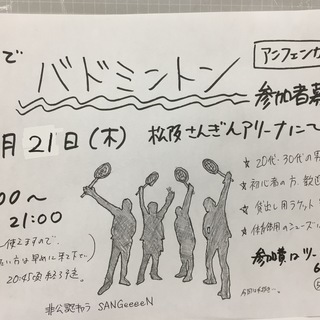 で
バドミントン
アンフェンガ
参加者募
月21日(木) 松阪さんぎんアリーナにて
00〜
21:00
使えますので、
方は早めに来て下さい
20:45頃終了予定
★20代・30代の男
★初心者の方、歓迎
★貸出し用ラケット
★体育館用のシューズ
参加費はツー
#公認キャラ SANGeeeeN